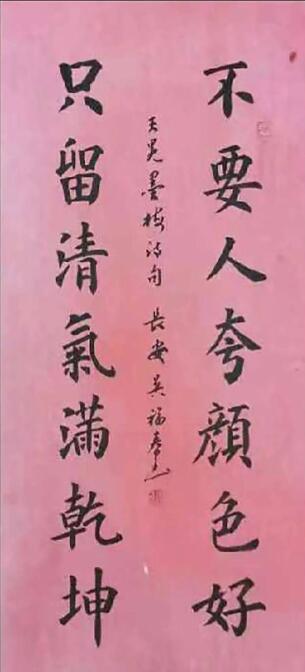 不要人夸顔色好
只留清氣滿乾坤
王冕墨梅诗句 長安吴福春